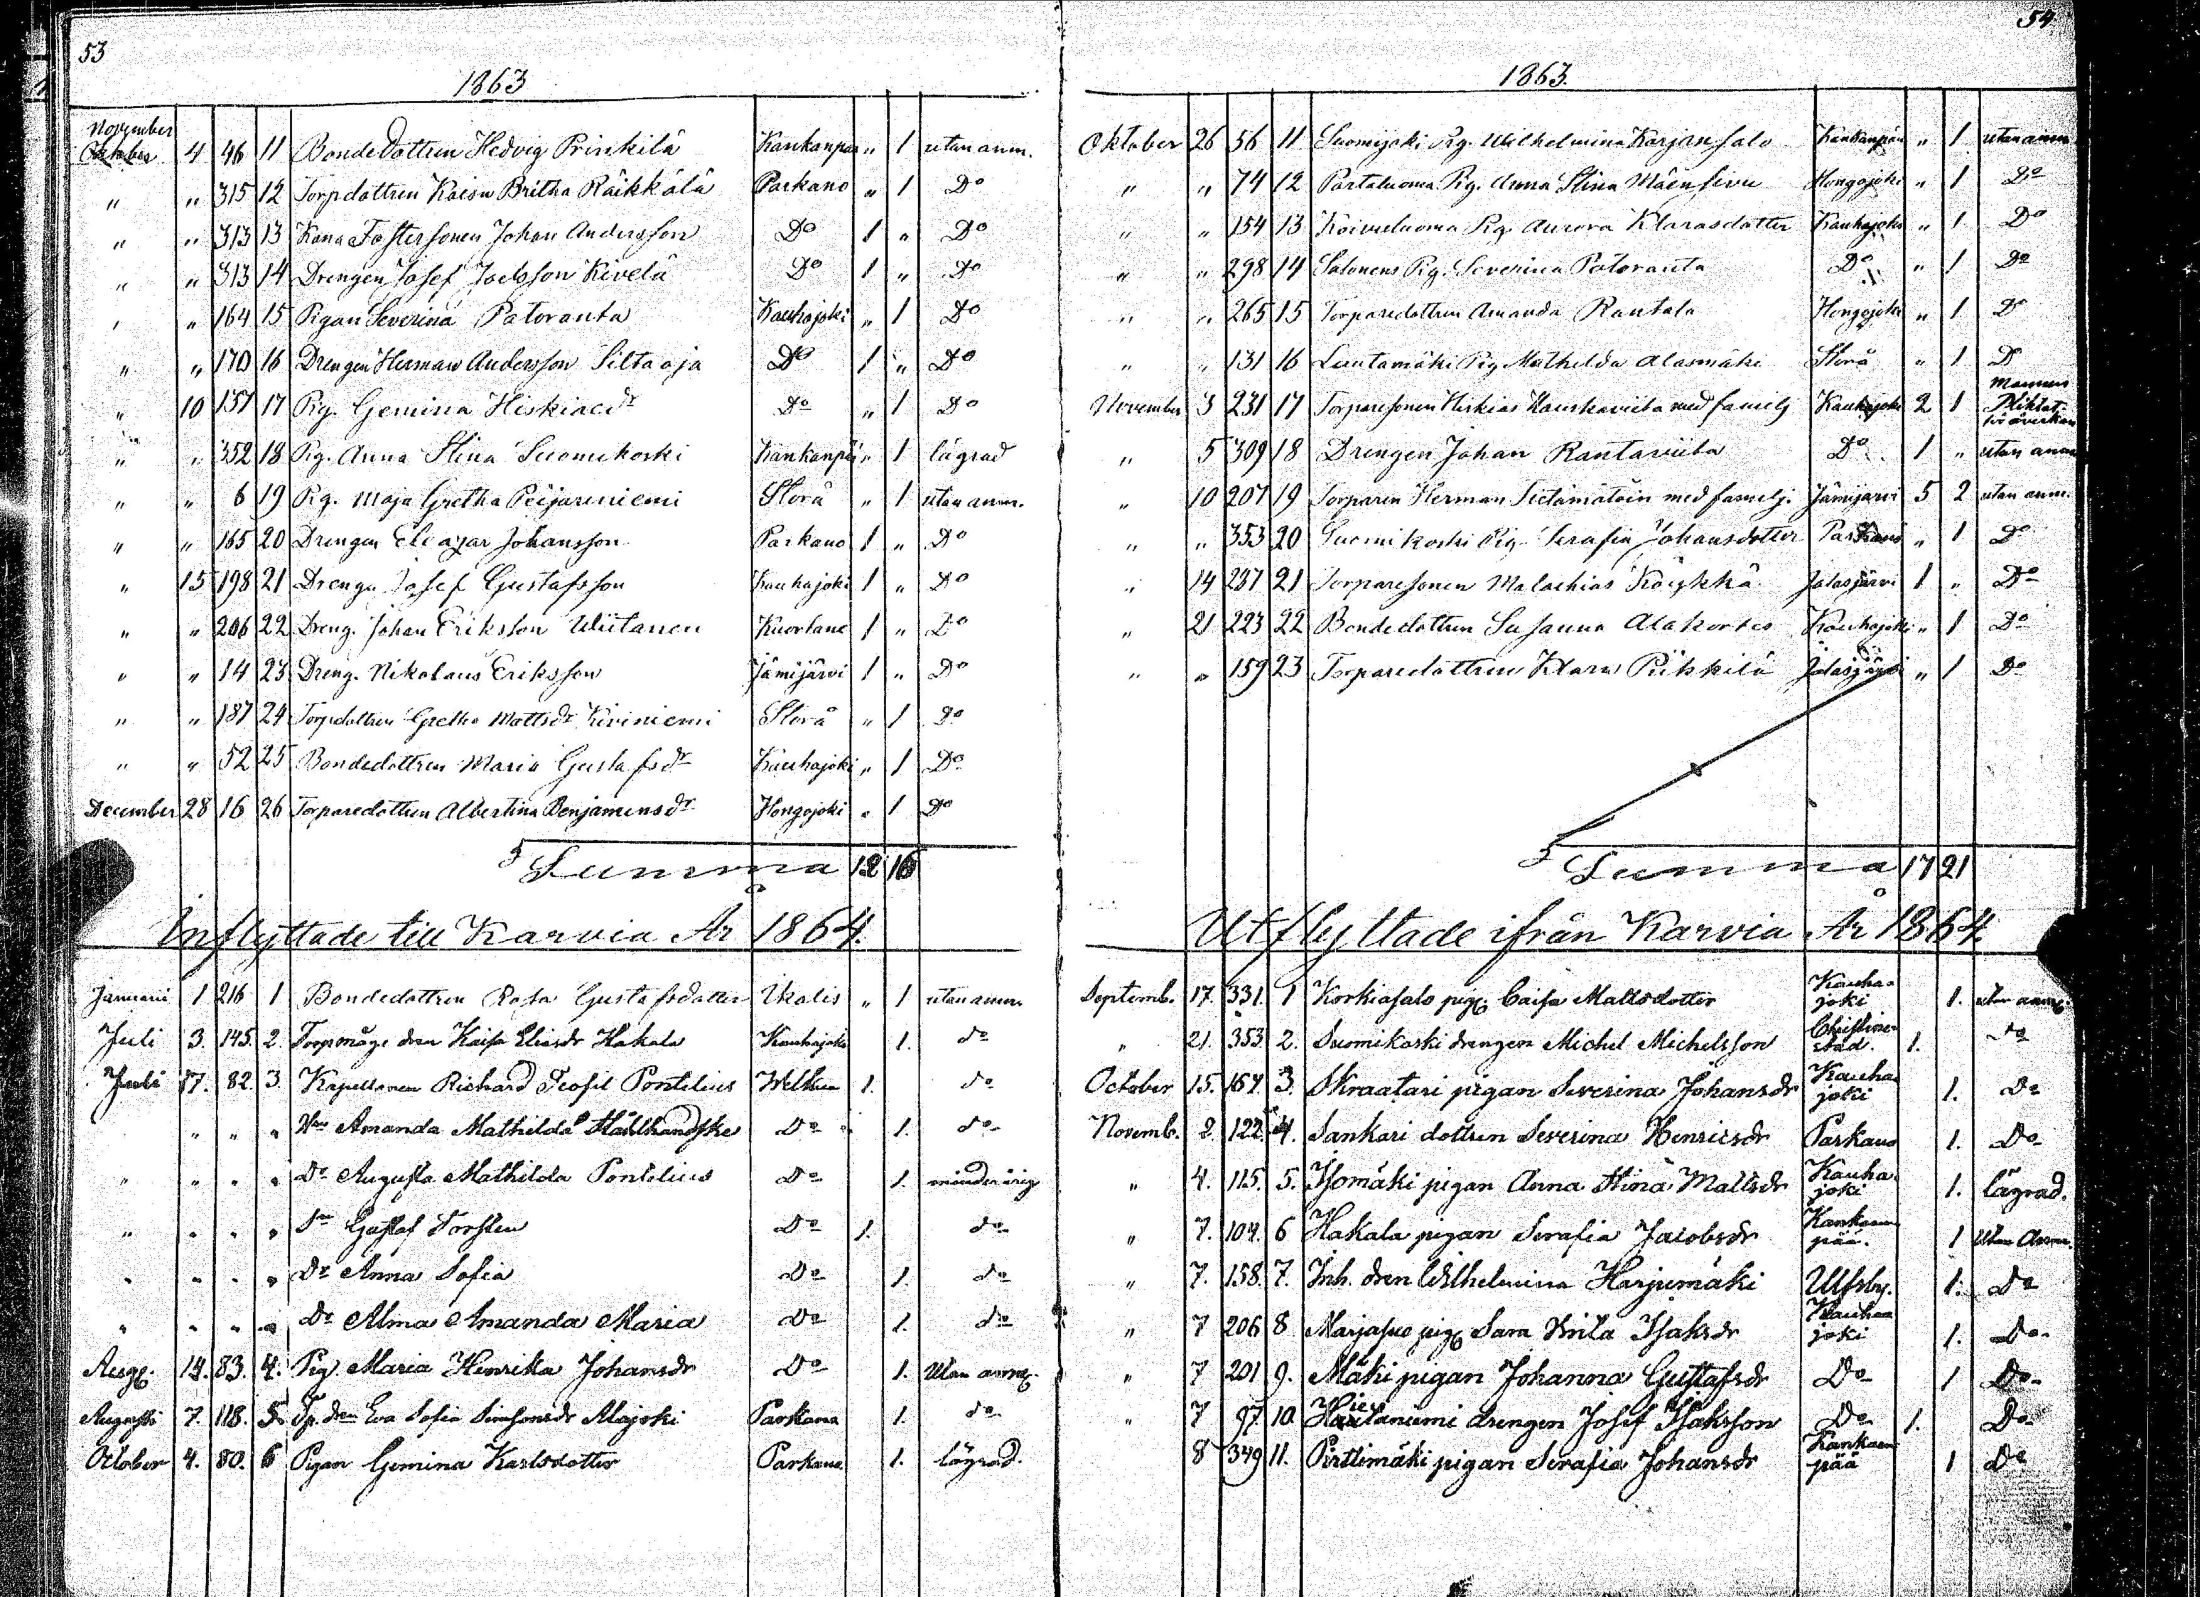 53
1863
November
October 4 46 11 Bondedottren Hedvig Prinkilä Kankanpää " 1 utan anm.
" " 315 12 Torpdottren Kaisa Britha Räikkälä Parkano " 1 Do
" " 313 13 Kana Fostersonen Johan Andersson Do 1 " Do
" " 313 14 Drengen Josef Joelsson Kivelä Do 1 " Do
" " 164 15 Pigan Severina Patoranta Kauhajoki " 1 Do
" " 170 16 Drengen Herman Andersson Siltaoja Do 1 " Do
" 10 157 17 Pig. Gemina Hiskiaedr Do " 1 Do
" " 352 18 Pig. Anna Stina Suomikoski Kankanpää " 1 lägrad
" " 6 19 Pig. Maja Gretha Peijariniemi Storå " 1 utan anm.
" " 165 20 Drengen Eleazar Johansson Parkano 1 " Do
" 15 198 21 Dreng. Josef Gustafsson Kauhajoki 1 " Do
" " 206 22 Dreng. Johan Eriksson Wiitanen Kuortane 1 " Do
" " 14 23 Dreng. Nikolaus Eriksson Jämijärvi 1 " Do
" " 187 24 Torpdottren Gretha Mattsdr Kiviniemi Storå " 1 Do
" " 52 25 Bondedottren Maria Gustafsdr Kauhajoki " 1 Do
December 28 16 26 Torparedottren Albertina Benjaminsdr Hongojoki " 1 Do
Summa 12 16
Inflyttade till Karvia År 1864.
Januari 1 216 1 Bondedottren Rosa Gustafsdotter Ikalis " 1 utan anm.
Juli 3. 145. 2. Torpmåge dren Kaisa Eliasdr Hakala Kauhajoki 1. do
Juli 17. 82. 3. Kapellanen Richard Teofil Pontelius Welkua 1. do
" " " Hru Amanda Mathilda Stålhandske Do 1. do
" " " " Dr Augusta Mathilda Pontelius Do 1. minderårig
" " " " Sn Gustaf Torsten Do 1. do
" " " " Dr Anna Sofia Do 1. do
" " " " Dr Alma Amanda Maria Do 1. do
Aug. 14. 83. 4. Pig. Maria Henrika Johansdr Do 1. Utan anmg.
Augusti 7. 118. 5. Tp. dren Eva Sofia Simsonsdr Alajoki Parkano 1. do
October 4. 80. 6 Pigan Gemina Karlsdotter Parkano 1. lägrad.
54
1863.
Oktober 26 56 11 Suomijoki Pig. Wilhelmina Karjansalo Kankanpää " 1 utan anm
" " 74 12 Partaluoma Pig. Anna Stina Mäensivu Hongojoki " 1 Do
" " 154 13 Koivuluoma Pig. Aurora Klarasdotter Kauhajoki " 1 Do
" " 298 14 Salonens Pig. Severina Patoranta Do " 1 Do
" " 265 15 Torparedottren Amanda Rantala Hongojoki " 1 Do
" " 131 16 Luutamäki Pig. Mathilda Alasmäki Storå " 1 D
November 3 231 17 Torparesonen Hiskias Hauskaviita med familj Kauhajoki 2 1 Mannen
" 5 309 18 Drengen Johan Rantaviita Do 1 " utan anm
" 10 207 19 Torparen Herman med familj. Jämijärvi 5 2 utan anm.
" " 353 20 Suomikoski Pig. Serafia Johansdotter Parkano " 1 Do
" 14 237 21 Torparesonen Malachias Köykkä Jalasjärvi 1 " Do
" 21 223 22 Bondedottren Susanna Alakortes Kauhajoki " 1 Do
" " 159 23 Torparedottren Klara Piikkilä Jalasjärvi " 1 Do
Summa 17 21
Utflyttade ifrån Karvia År 1864.
Septemb. 17. 331. 1 Korkiasalo pig. Caisa Mattsdotter Kauhajoki 1. utan anmg
" 21. 353 2. Suomikoski drengen Michel Michelsson Christinestad. 1. do
October 15. 167. 3. Skraatari pigan Severina Johansdr Kauhajoki 1. Do
Novemb. 2. 122. 4. Sankari dottren Severina Henricsdr Parkano 1. Do
" 4. 115. 5. Isomäki pigan Anna Stina Mattsdr Kauhajoki 1. lägrad.
" 7. 104. 6 Hakala pigan Serafia Jacobsdr Kankaanpää. 1 Utan Anm.
" 7. 158. 7. Inh. dren Wilhelmina Harjumäki Ulfsby. 1. Do
" 7 206 8 Marjasuo pig. Sara Ulrika Isaksdr Kauhajoki 1. Do
" 7 201 9. Mäki pigan Johanna Gustafsdr Do 1 Do
" 7 97. 10. Hietaniemi drengen Josef Isaksson Do 1. Do
8 349 11. Perttimäki pigan Serafia Johansdr Kankaanpää 1 Do